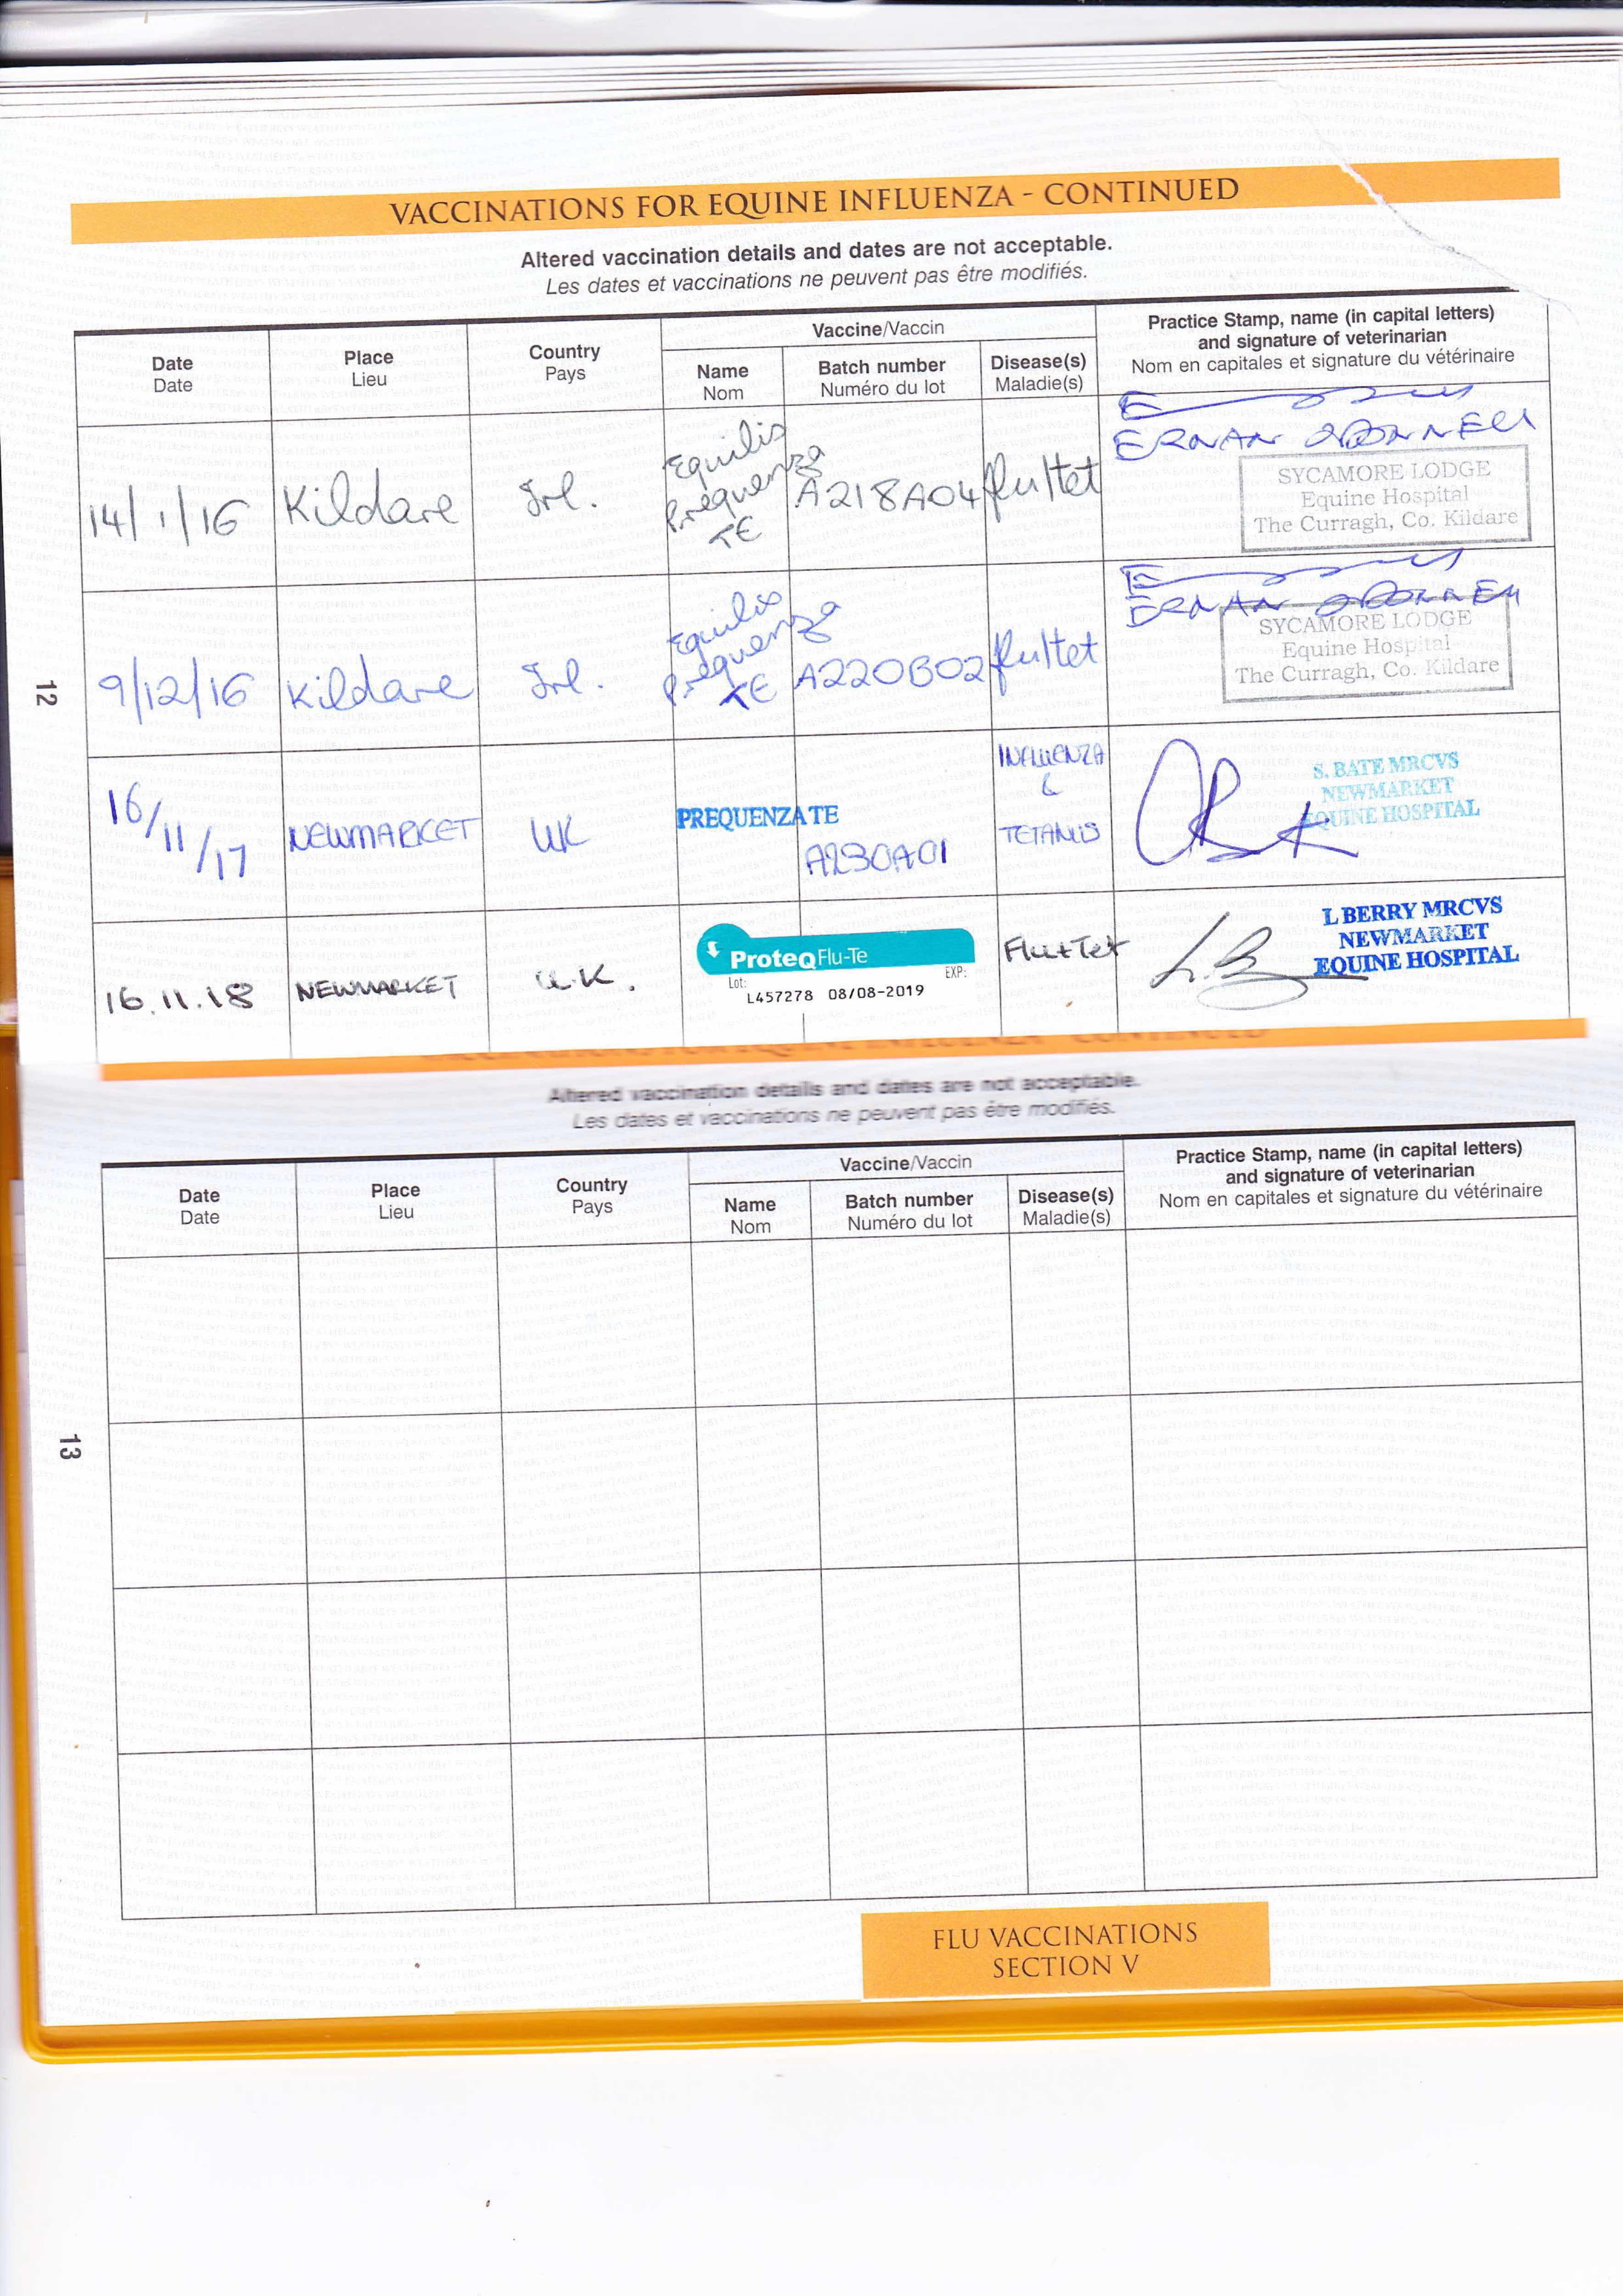 VACCINATIONS FOR EQUINE INFLUENZA - CONTINUED
Altered vaccination details and dates are not acceptable.
Les dates et vaccinations ne peuvent pas être modifiés.
Date
Date
Place
Lieu
Country
Pays
Vaccine/Vaccin
Name
Nom
Batch number
Numéro du lot
Disease(s)
Maladie(s)
Practice Stamp, name (in capital letters)
and signature of veterinarian
Nom en capitales et signature du vétérinaire
14/1/16
Kildare
Irl.
Equilis
Prequenza
TE
A218A04
flu/tet
ERNAN O'DONNELL
SYCAMORE LODGE
Equine Hospital
The Curragh, Co. Kildare
12
9/12/16
Kildare
Irl.
Equilis
Prequenza
TE
A220B02
flu/tet
ERNAN O'DONNELL
SYCAMORE LODGE
Equine Hospital
The Curragh, Co. Kildare
16/11/17
NEWMARKET
UK
PREQUENZA TE
A230A01
INFLUENZA
&
TETANUS
S. BATE MRCVS
NEWMARKET
EQUINE HOSPITAL
16.11.18
NEWMARKET
U.K.
ProteqFlu-Te
Lot:
EXP:
L457278 08/08-2019
Flu+Tet
L BERRY MRCVS
NEWMARKET
EQUINE HOSPITAL
Altered vaccination details and dates are not acceptable.
Les dates et vaccinations ne peuvent pas être modifiés.
Date
Date
Place
Lieu
Country
Pays
Vaccine/Vaccin
Name
Nom
Batch number
Numéro du lot
Disease(s)
Maladie(s)
Practice Stamp, name (in capital letters)
and signature of veterinarian
Nom en capitales et signature du vétérinaire
13
FLU VACCINATIONS
SECTION V